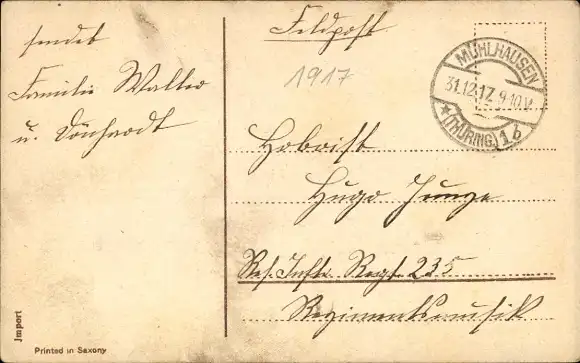 sendet
Familie Walter
u.
Feldpost
1917
MÜHLHAUSEN
31.12.17. 9-10V.
* (THÜRING.) 1 b
Hoboist
Hugo Junge
Res. Inftr. Regt. 235
Regimentsmusik
Import
Printed in Saxony